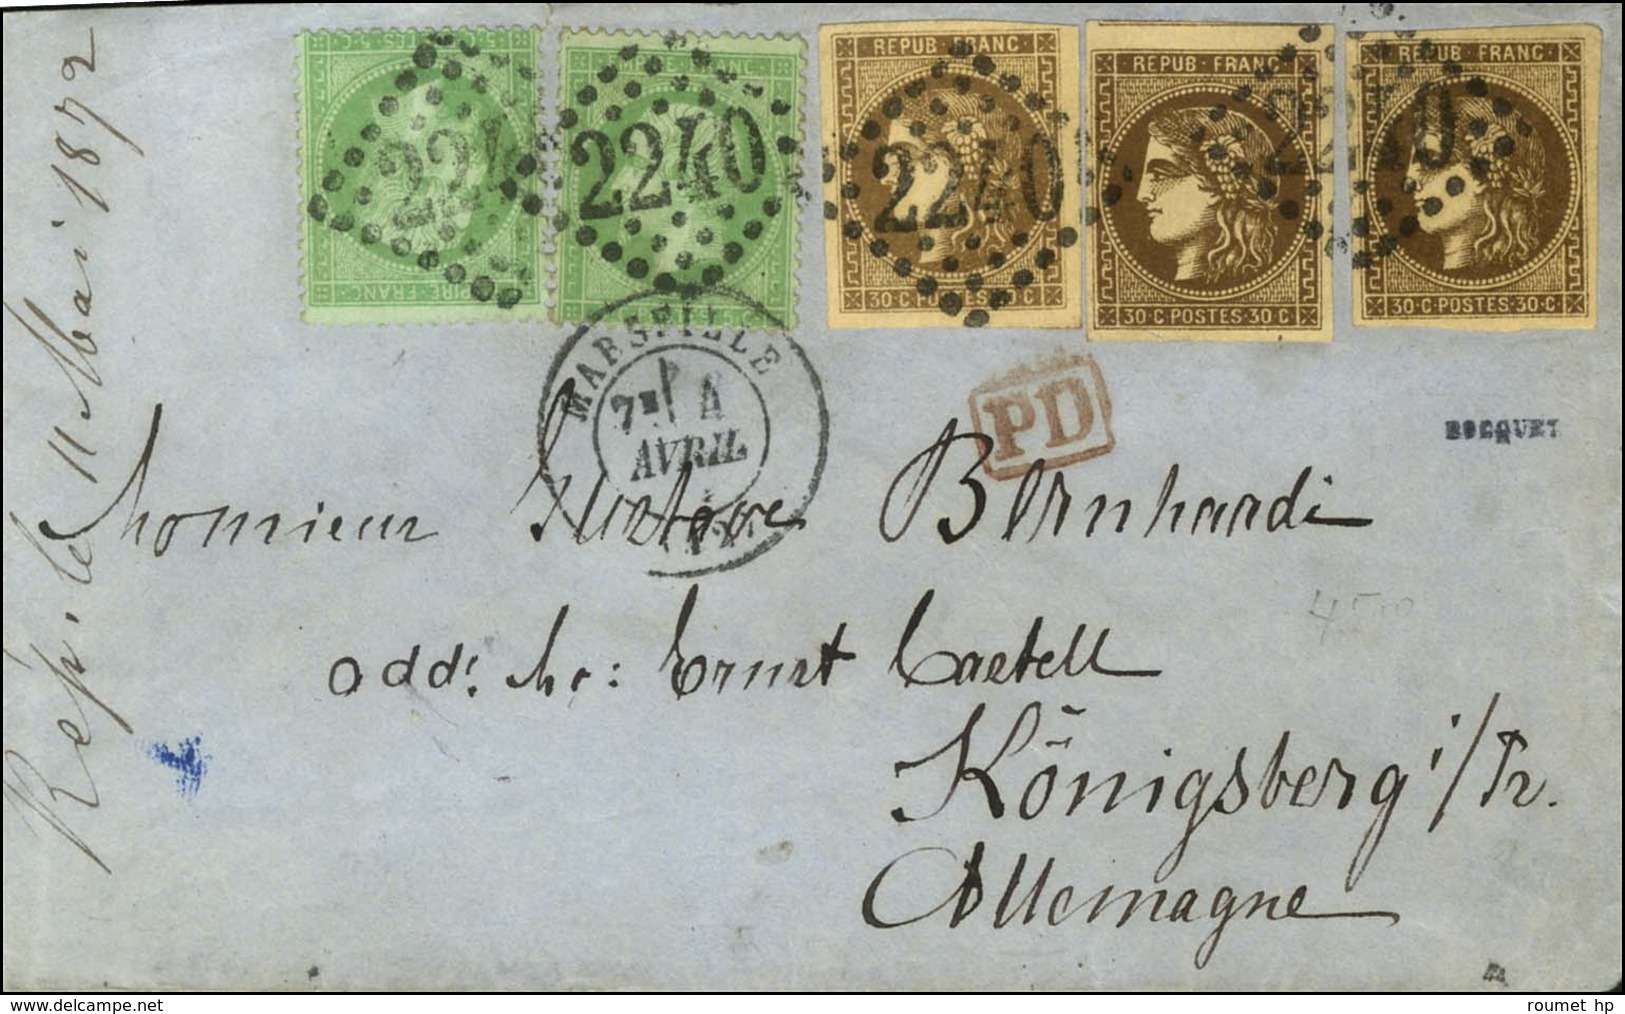 5 C
EMPIRE FRANC
REPUB FRANC
30·C·POSTES·30·C
REPUB FRANC
30·C·POSTES·30·C
REPUB FRANC
30·C·POSTES·30·C
224
2240
2240
2240
MARSEILLE
4
AVRIL
PD
BOCQUET
Monsieur Gustave Bernhardi
Ernst Castell
Königsberg i/Pr.
Allemagne
Rép. le 11 Mai 1872
roumet hp